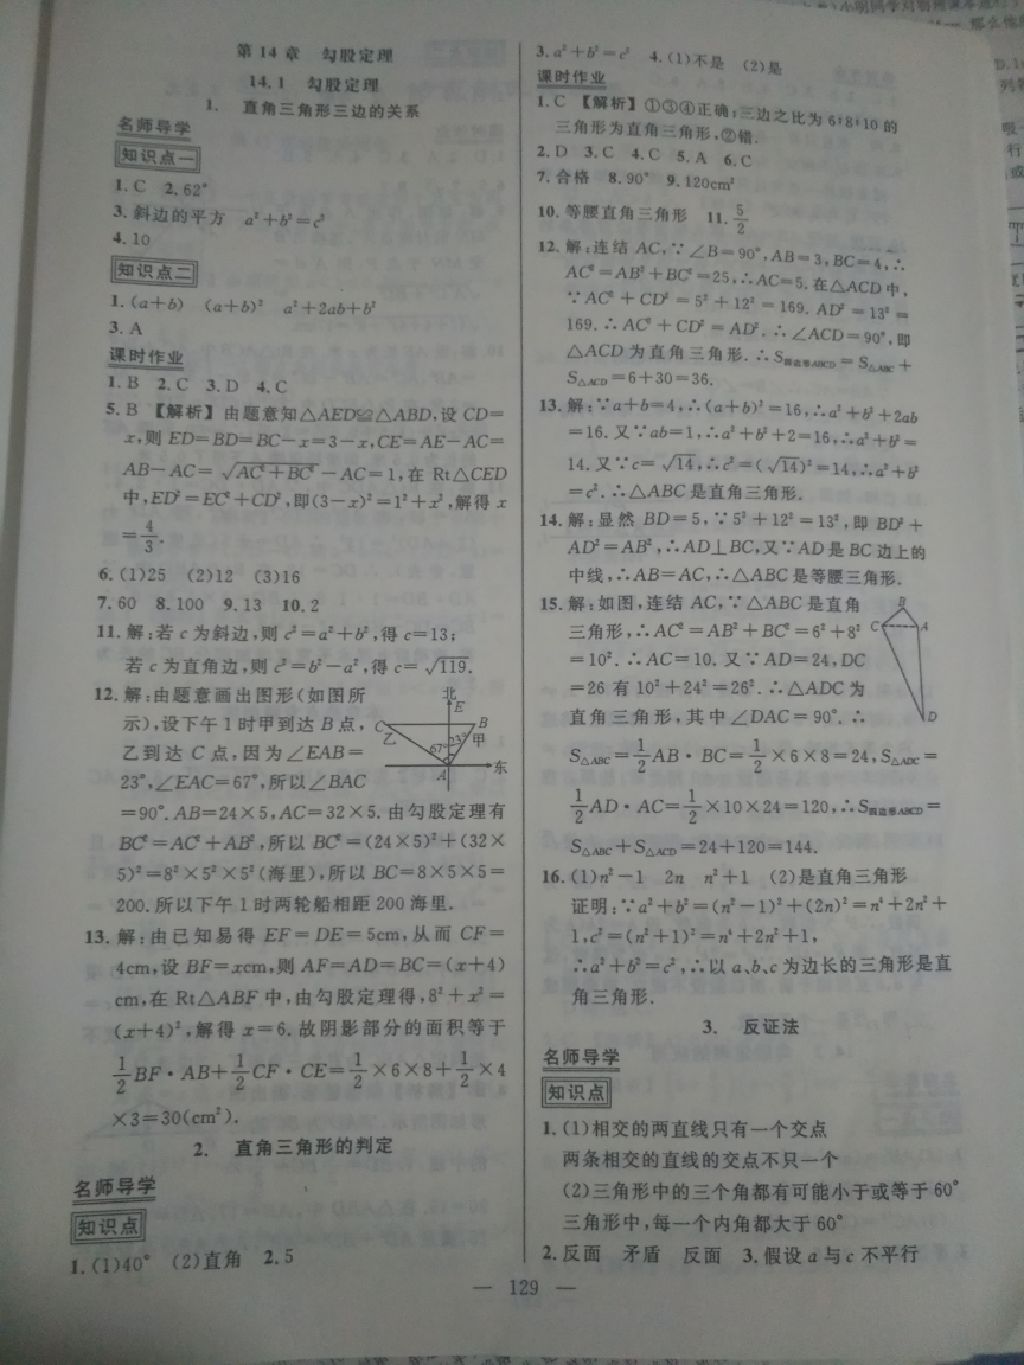 第14章 勾股定理
14.1 勾股定理
1. 直角三角形三边的关系
名师导学
知识点一
1.C 2.62°
3.斜边的平方 a²+b²=c²
4.10
知识点二
1.(a+b) (a+b)² a²+2ab+b²
3.A
课时作业
1.B 2.C 3.D 4.C
5.B 【解析】由题意知△AED≌△ABD,设CD=
x,则ED=BD=BC-x=3-x,CE=AE-AC=
AB-AC=√(AC²+BC²)-AC=1,在Rt△CED
中,ED²=EC²+CD²,即(3-x)²=1²+x²,解得x
=4/3.
6.(1)25 (2)12 (3)16
7.60 8.100 9.13 10.2
11.解:若c为斜边,则c²=a²+b²,得c=13;
若c为直角边,则c²=b²-a²,得c=√119.
12.解:由题意画出图形(如图所
示),设下午1时甲到达B点,
乙到达C点,因为∠EAB=
23°,∠EAC=67°,所以∠BAC
=90°.AB=24×5,AC=32×5.由勾股定理有
BC²=AC²+AB²,所以BC²=(24×5)²+(32×
5)²=8²×5²×5²(海里),所以BC=8×5×5=
200.所以下午1时两轮船相距200海里.
北
E
C
B
乙
甲
67°
23°
A
东
13.解:由已知易得EF=DE=5cm,从而CF=
4cm,设BF=xcm,则AF=AD=BC=(x+4)
cm,在Rt△ABF中,由勾股定理得,8²+x²=
(x+4)²,解得x=6.故阴影部分的面积等于
1/2BF·AB+1/2CF·CE=1/2×6×8+1/2×4
×3=30(cm²).
2. 直角三角形的判定
名师导学
知识点
1.(1)40° (2)直角 2.5
3.a²+b²=c² 4.(1)不是 (2)是
课时作业
1.C 【解析】①③④正确;三边之比为6:8:10的
三角形为直角三角形,②错.
2.D 3.C 4.C 5.A 6.C
7.合格 8.90° 9.120cm²
10.等腰直角三角形 11.5/2
12.解:连结AC,∵∠B=90°,AB=3,BC=4,∴
AC²=AB²+BC²=25,∴AC=5.在△ACD中,
∵AC²+CD²=5²+12²=169.AD²=13²=
169.∴AC²+CD²=AD².∴∠ACD=90°,即
△ACD为直角三角形.∴S四边形ABCD=S△ABC+
S△ACD=6+30=36.
13.解:∵a+b=4,∴(a+b)²=16,∴a²+b²+2ab
=16.又∵ab=1,∴a²+b²+2=16,∴a²+b²=
14.又∵c=√14,∴c²=(√14)²=14,∴a²+b²
=c².∴△ABC是直角三角形.
14.解:显然BD=5,∵5²+12²=13²,即BD²+
AD²=AB²,∴AD⊥BC,又∵AD是BC边上的
中线,∴AB=AC,∴△ABC是等腰三角形.
15.解:如图,连结AC,∵△ABC是直角
三角形,∴AC²=AB²+BC²=6²+8²
=10².∴AC=10.又∵AD=24,DC
=26有10²+24²=26².∴△ADC为
直角三角形,其中∠DAC=90°.∴
B
C
A
D
S△ABC=1/2AB·BC=1/2×6×8=24,S△ADC=
1/2AD·AC=1/2×10×24=120,∴S四边形ABCD=
S△ABC+S△ACD=24+120=144.
16.(1)n²-1 2n n²+1 (2)是直角三角形
证明:∵a²+b²=(n²-1)²+(2n)²=n⁴+2n²+
1,c²=(n²+1)²=n⁴+2n²+1,
∴a²+b²=c²,∴以a、b、c为边长的三角形是直
角三角形.
3. 反证法
名师导学
知识点
1.(1)相交的两直线只有一个交点
两条相交的直线的交点不只一个
(2)三角形中的三个角都有可能小于或等于60°
三角形中,每一个内角都大于60°
2.反面 矛盾 反面 3.假设a与c不平行
— 129 —